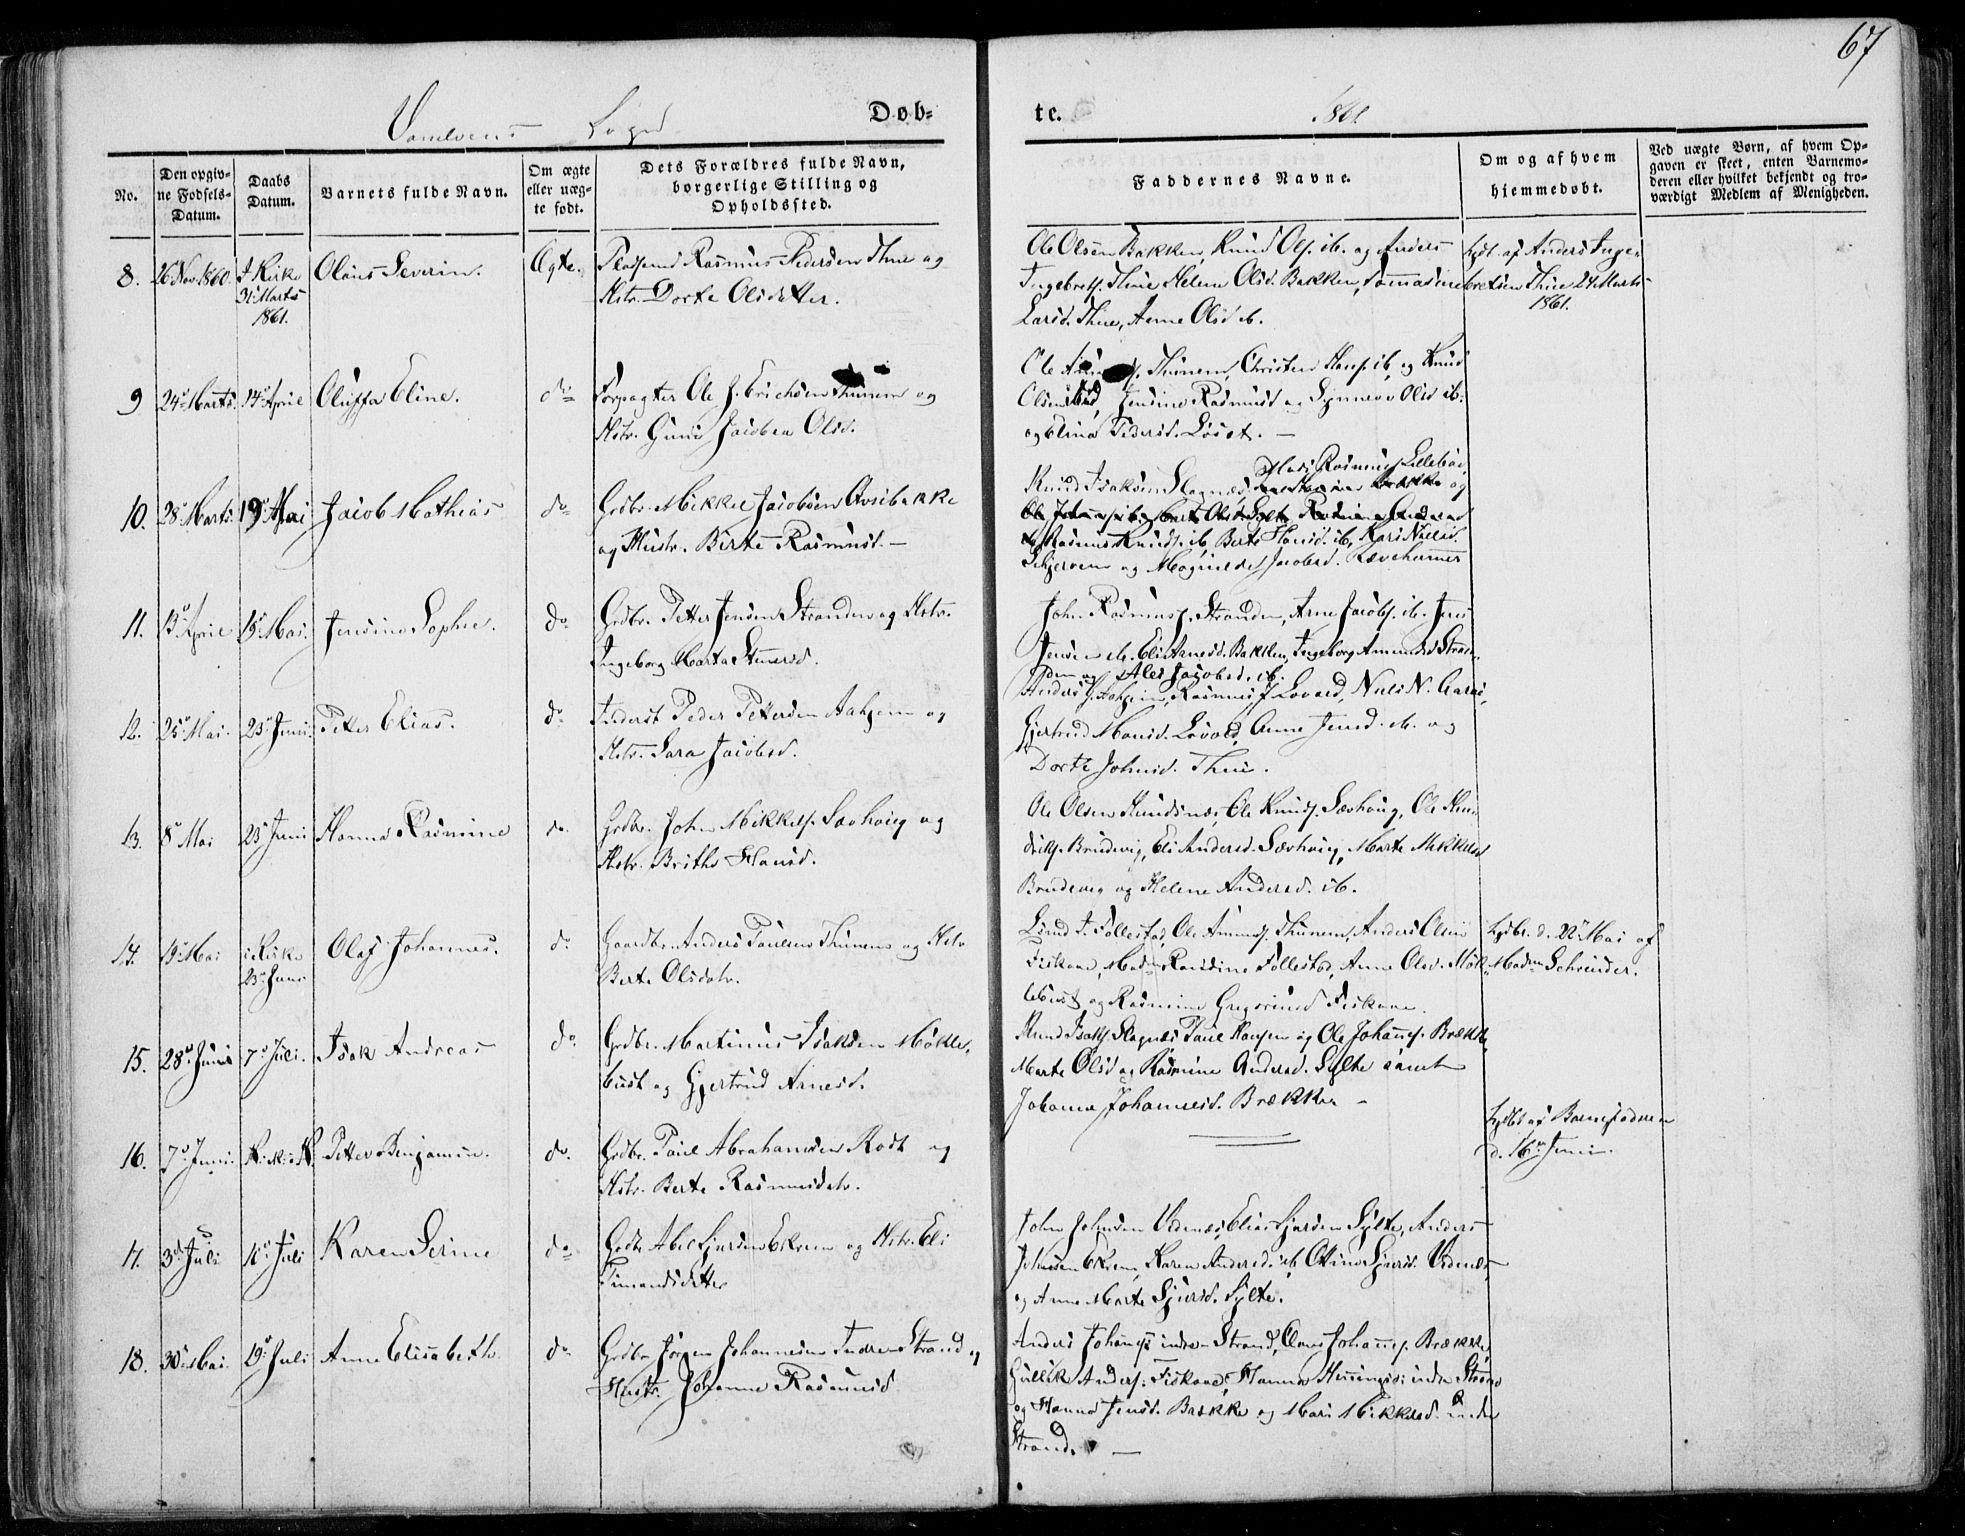 67
Vanelvens Sogn Døb-
te. 1861
No.
Den opgiv-
ne Fødsels-
Datum.
Daabs
Datum.
Barnets fulde Navn.
Om ægte
eller uæg-
te født.
Dets Forældres fulde Navn,
borgerlige Stilling og
Opholdssted.
Faddernes Navne.
Om og af hvem
hjemmedøbt.
Ved uægte Børn, af hvem Op-
gaven er skeet, enten Barnemo-
deren eller hvilket bekjendt og tro-
værdigt Medlem af Menigheden.
8. 26 Nov 1860. I Kirke
31 Marts
1861.
Olaus Severin.
Ægte.
Rasmus Pedersen Thue og
Hstr. Dorte Olsdatter.
Ole Olsen Bakken, Knud Ols. ib. og Anders
Ingebrets. Thue Helene Olsd. Bakken, Tomasine
Larsd. Thue, Anne Olsd ib.
hjdt. af Anders Inge-
bretsen Thue 24 Marts
1861.
9 24 Marts. 14 April Oluffa Eline. do
Forpagter Ole J. Erichsen Thunem og
Hstr. Guni Jacobea Olsd.
Ole Thunem, Christen Hans. ib, og Knud
Olsen ibid, Jensine Rasmusd og Synneve Olsd ib.
og Elina Pedersd. Løset. —
10. 28 Marts. 19 Mai Jacob Mathias do
Grdbr. Mikkel Jacobsen Aasebakke
og Hustr. Birte Rasmusd. —
Mads Rasmus. Lillebøe,
Knud Isaksen Slagnæs og
Rasmus Knuds. ib, Berte Hansd. ib, Kari Nielsd.
Skjerven og Magnilde Jacobsd. Rævehammer
11. 13 April 19 Mai. Jensine Sophie. do.
Grdbr. Petter Jensen Stranden og Hstr.
Ingeborg Marta Steinersd.
John Rasmus. Stranden, Arne Jacobs. ib. Jens
Jensen ib. Eli Arnesd. Bakken, Ingeborg Amundsd Stran-
den og Ales Jacobsd. ib.
12. 25 Mai. 23 Juni. Petter Elias. do
Inderst Peder Pettersen Aahjem og
Hstr. Sara Jacobsd.
Anders J. Aahjem, Rasmus J. Lovold, Niels N. Aarnes,
Gjertrud Monsd. Lovold, Anne Jensd. ib. og
Dorte Johnsd. Thue.
13. 8 Mai 23 Juni Hanna Rasmine do.
Grdbr. John Mikkels. Savhoug og
Hstr. Brithe Hansd.
Ole Olsen Hundsnæs, Ole Knuds. Sævhoug, Ole Hen-
driks. Brudevig, Eli Andersd. Sævhoug, Marte Mikkelsd
Brudevig og Helene Andersd. ib.
14. 19 Mai i Kirke
23 Juni
Olaf Johannes. do
Gaardbr. Anders Paulsen Thunem og Hstr
Berte Olsdatr.
Follestad, Ole Amunds. Thunem, Anders Olsen
Fiskaae, Madm Randine Follestad, Anne Olsd. Møk-
lebust og Rasmine Gregoriusd Fiskaae.
hjdbt. d. 22 Mai af
Madm Schrøder.
15. 28 Juni 7 Juli. Isak Andreas do
Grdbr. Martinus Isaksen Møkle-
bust og Gjertrud Arnesd.
Knud Isaks. Slagnæs Paul Hansen og Ole Johans. Brækk-
Marte Olsd og Rasmine Andersd. Sylte samt
Johanne Johannesd. Brækker —
16. 7 Juni. Petter Benjamin. do.
Grdbr. Paul Abrahamsen Rødt og
Hstr. Berte Rasmusdatr.
hjdbt af Barnefaderen
d. 16 Juni.
17. 3 Juli 16 Juli Karen Serine do
Grdbr Abel Sjursen Ekrem og Hstr. Eli
Simonsdatter
John Johnsen Videnæs, Elias Sjursen Sylte, Anders
Johnsen Ekrem, Karen Andersd. ib, Oline Sjursd. Videnæs
og Anne Marte Sjursd. Sylte.
18. 30 Mai. 19 Juli Anne Elisabeth. do
Grdbr Jørgen Johannesen Indre Strand og
Hustr. Johanne Rasmusd
Anders Johans. indre Strand, Claus Johans. Brække,
Gullik Anders. Fiskaae, Hanna Henningsd. indre Strand
og Hanna Jensd. Brække og Mari Mikkelsd. indre
Strand. —